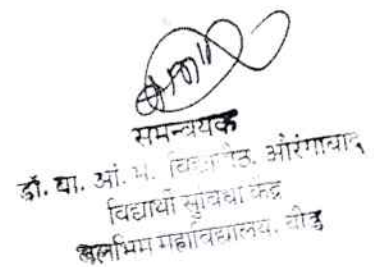 समन्वयक
डॉ. बा. आं. म. विद्यापीठ, औरंगाबाद
विद्यार्थी सुविधा केंद्र
बलभिम महाविद्यालय, बीड